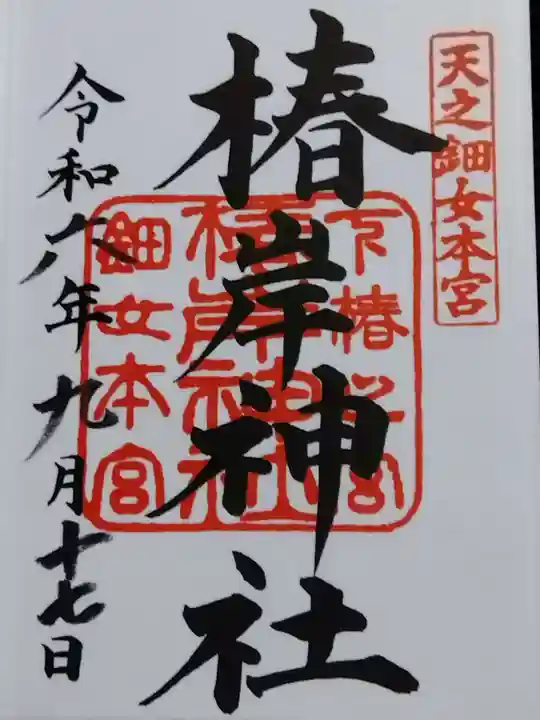 天之鈿女本宮
椿岸神社
下椿之宮
椿岸神社
鈿女本宮
令和六年九月十七日